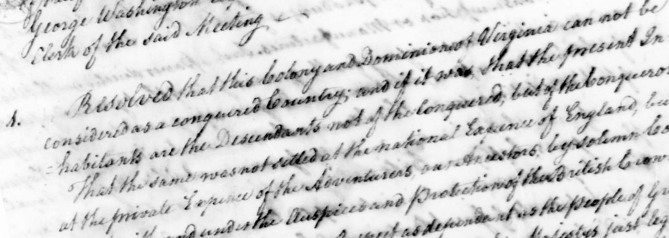 George Washington
Clerk of the said Meeting
1. Resolved that this Colony and Dominion of Virginia can not be
considered as a conquered Country; and if it was, that the present In-
=habitants are the Descendants not of the Conquered, but of the Conquerors
That the same was not setled at the national Expence of England, but
at the private Expence of the Adventurers, our Ancestors, by solemn
and under the Auspices and Protection of the British
as dependant as the people of G